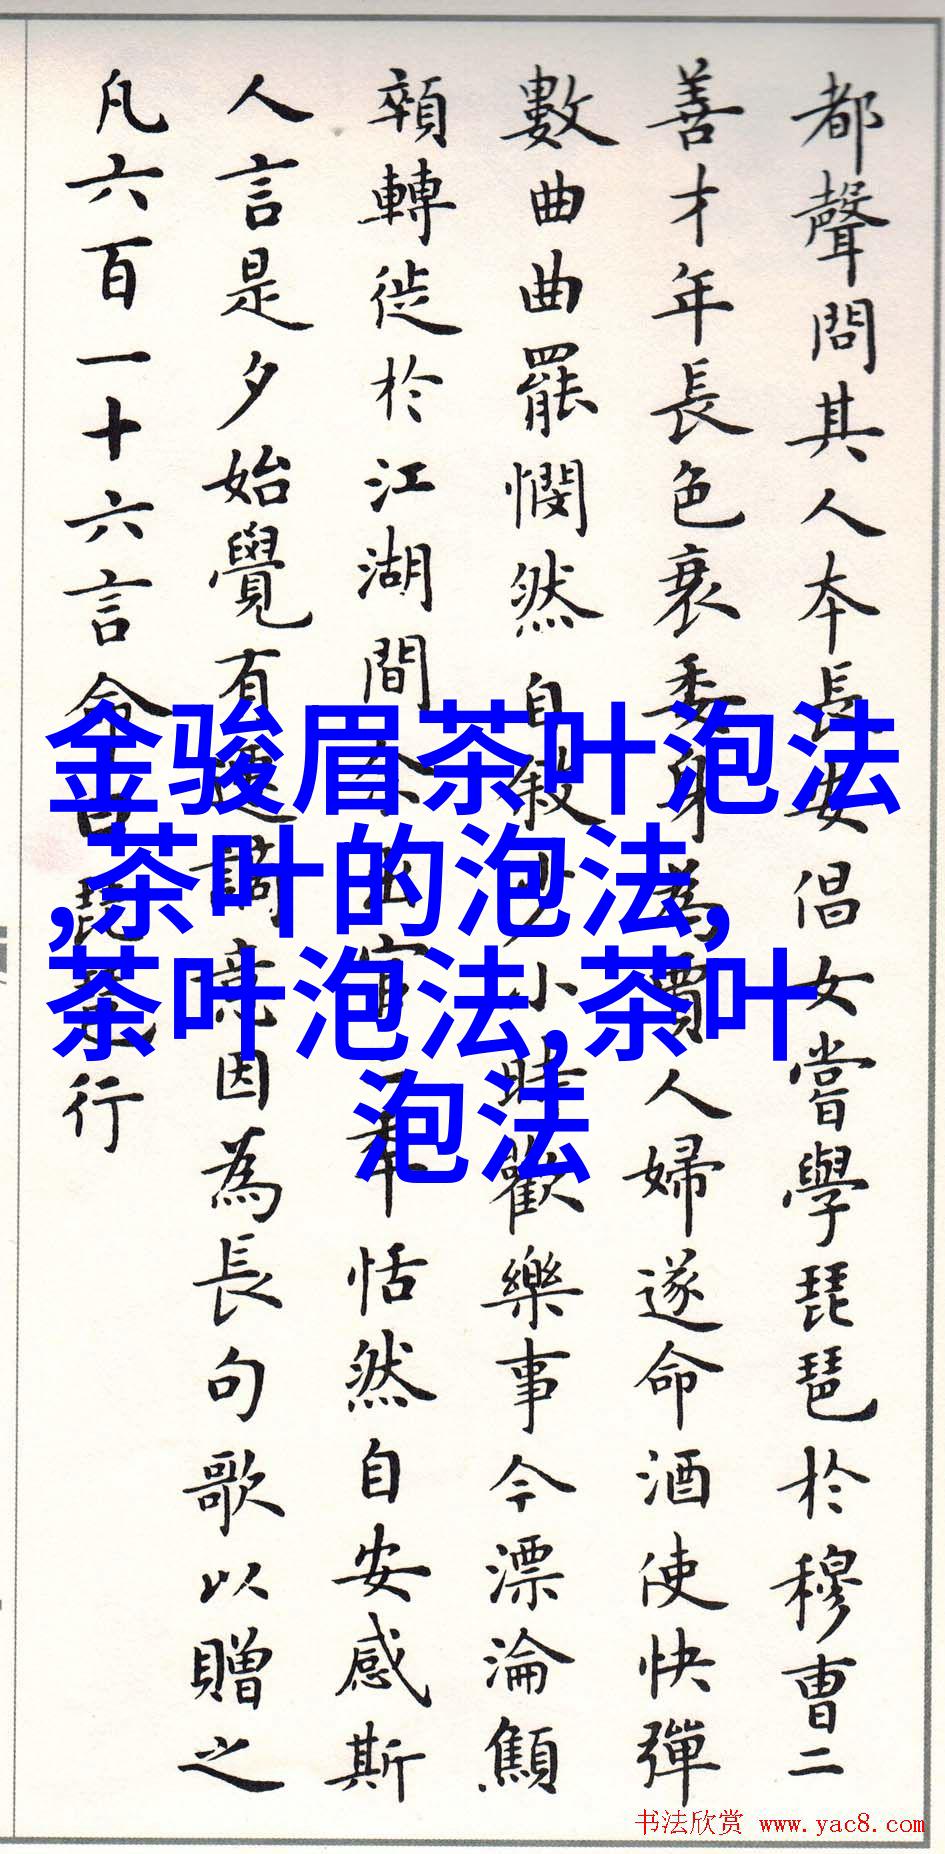 都聲問其人本長安倡女嘗學琵琶於穆曹二
善才年長色衰委身為賈人婦遂命酒使快彈
數曲曲罷憫然自叙少小時歡樂事今漂淪顦
顇轉徙於江湖間余出官二年恬然自安感斯
人言是夕始覺有遷謫意因為長句歌以贈之
凡六百一十六言命曰琵琶行
金骏眉茶叶泡法
,茶叶的泡法,
茶叶泡法,茶叶
泡法
书法欣赏 www.yac8.com